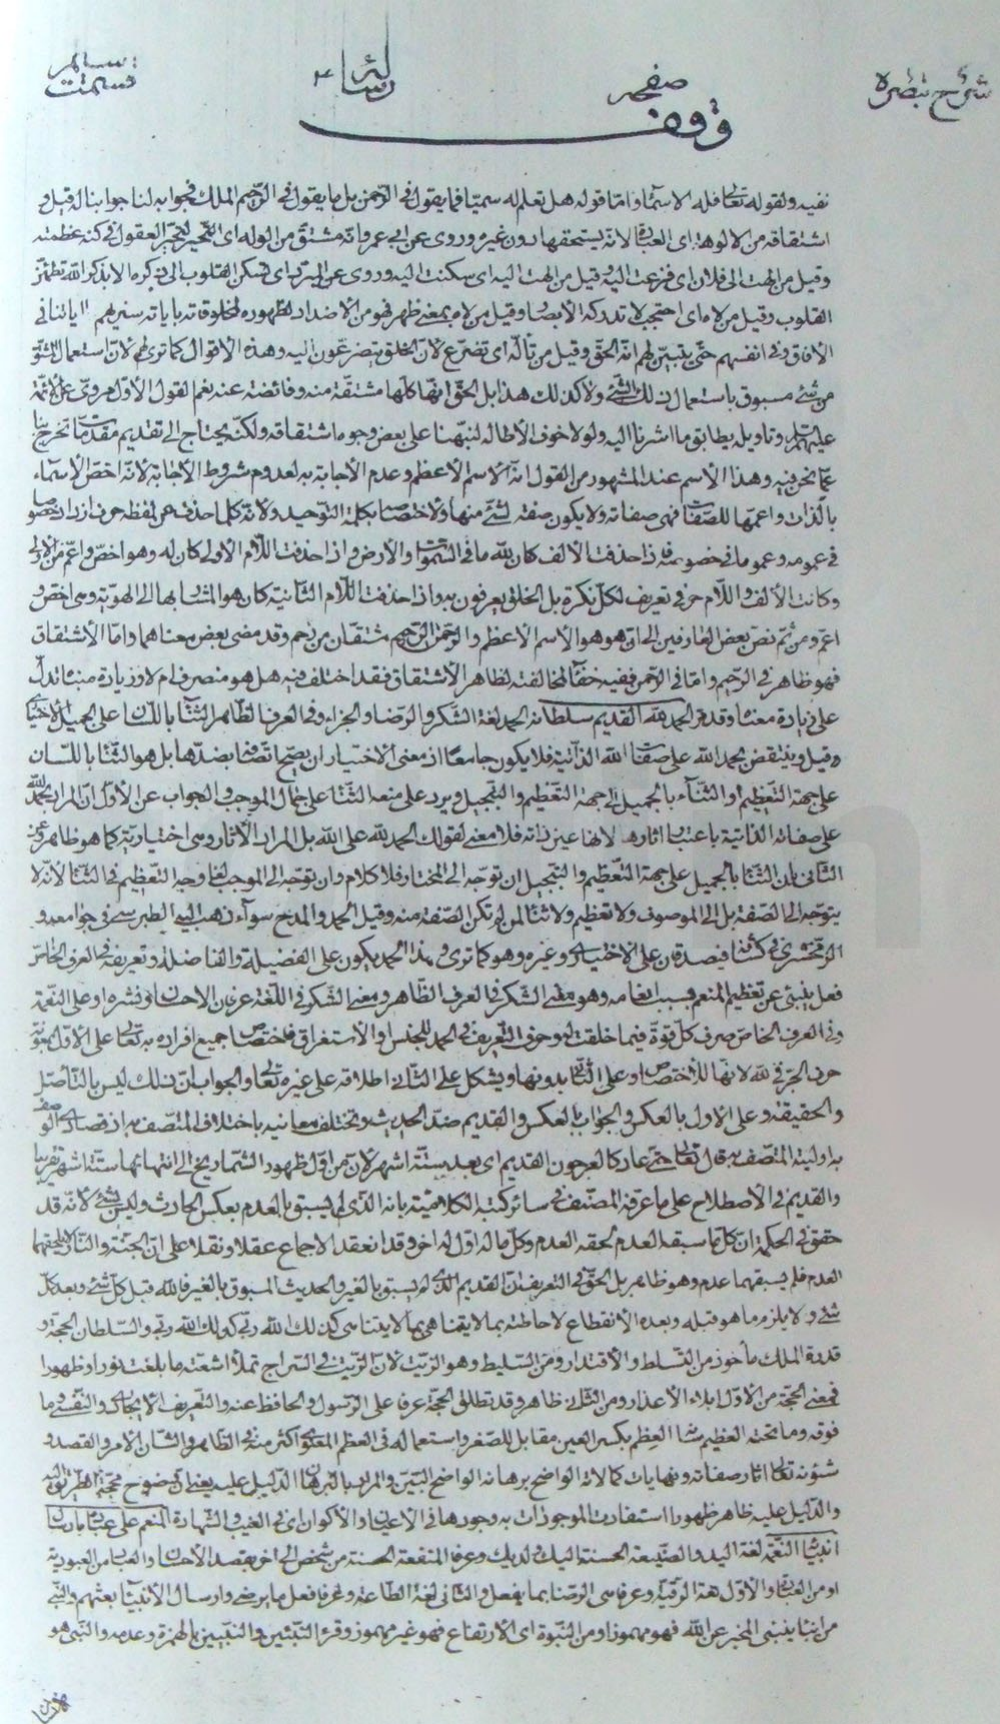 شرح تبصره
صفحه
رسائل ٣
قسمت
وقف
نفيه ولقوله تعالى فله الاسماء واما قوله هل تعلم له سميا فما يقول في الرحمن بل ما يقول في الرحيم الملك فجوابه لنا جوابنا له قيل و
اشتقاقه من الالوهة اى العبادة لانه يستحقها دون غيره وروى عن ابى عمرو انه مشتق من الوله اى التحير لتحير العقول في كنه عظمته
وقيل من الهت الى فلان اى فزعت اليه وقيل من الهت اليه اى سكنت اليه وروى عن المبرد اى تسكن القلوب الى ذكره الا بذكر الله تطمئن
القلوب وقيل من لاه اى احتجب لا تدركه الابصار وقيل من لاه بمعنى ظهر فهو من الاضداد لظهوره لمخلوقاته باياته سنريهم اياتنا في
الآفاق وفى انفسهم حتى يتبين لهم انه الحق وقيل من تأله اى تضرع لان الخلق يتضرعون اليه وهذه الاقوال كما ترى لان استعمال المشتق
من شئ مسبوق باستعمال ذلك الشئ ولا كذلك هذا بل الحق انها كلها مشتقة منه وفائضة عنه نعم القول الاول مروى عن الائمة
عليهم السلام وتاويله يطابق ما اشرنا اليه ولولا خوف الاطالة لنبهنا على بعض وجوه اشتقاقه ولكنه يحتاج الى تقديم مقدمات تخرج بنا
عما نحن فيه وهذا الاسم عند المشهور من القول انه الاسم الاعظم وعدم الاجابة به لعدم شروط الاجابة لانه اخص الاسماء
بالذات واعمها للصفات فهى صفاته ولا يكون صفة لشئ منها ولاختصاصه بكلمة التوحيد ولانه كلما حذف من لفظه حرف ازداد خصوصا
في عمومه وعموما في خصوصه فاذا حذفت الالف كان لله ما في السموات والارض واذا حذفت اللام الاولى كان له وهو اخص واعم من الاولى
وكانت الالف واللام حرفى تعريف لكل نكرة بل الخلق يعرفون به واذا حذفت اللام الثانية كان هو المشار بها الى الهوية وهى اخص و
اعم ومن ثم نص بعض العارفين الى ان هو هو الاسم الاعظم والرحمن الرحيم مشتقان من رحم وقد مضى بعض معناهما واما الاشتقاق
فهو ظاهر في الرحيم واما في الرحمن ففيه خفاء لمخالفته لظاهر الاشتقاق فقد اختلف فيه هل هو منصرف ام لا وزيادة مبناه تدل
على زيادة معناه وقد مر الحمد لله القديم سلطانه الحمد لغة الشكر والرضا والجزاء وفى العرف الظاهر الثناء باللسان على الجميل الاختيارى
وقيل وينتقض بحمد الله على صفات الله الذاتية فلا يكون جامعا اذ معنى الاختيار ان يصح اتصافه بضدها بل هو الثناء باللسان
على جهة التعظيم او الثناء بالجميل على جهة التعظيم والتبجيل ويرد على منعه الثناء على جمال الموجب والجواب عن الاول ان المراد بحمد الله
على صفاته الذاتية باعتبار اثارها لانها عين ذاته فلا معنى لقولك الحمد لله على الله بل المراد الآثار وهى اختيارية كما هو ظاهر وعن
الثانى بان الثناء بالجميل على جهة التعظيم والتبجيل ان توجه الى المختار فلا كلام وان توجه الى الموجب لغا وجه التعظيم في الثناء لانه لا
يتوجه الى الصفة بل الى الموصوف ولا تعظيم ولا ثناء لمن لم تكن الصفة منه وقيل الحمد والمدح سواء ذهب اليه الطبرسى في جوامعه و
الزمخشرى في كشافه فيصدقان على الاختيارى وغيره وهو كما ترى وبهذا الحمد يكون على الفضيلة والفاضلة وتعريفه في العرف الخاص
فعل ينبئ عن تعظيم المنعم بسبب انعامه وهو معنى الشكر في العرف الظاهر ومعنى الشكر في اللغة عرفان الاحسان او نشره او على النعمة
وفى العرف الخاص صرف كل قوة فيما خلقت له وحرف التعريف في الحمد للجنس او الاستغراق فاختصاص جميع افراده به تعالى على الاول بمعونة
حرف الجر في لله لانها للاختصاص وعلى الثانى بدونها ويشكل على الثانى اطلاقه على غيره تعالى والجواب ان ذلك ليس بالتأصل
والحقيقة وعلى الاول بالعكس والجواب بالعكس والقديم ضد الحديث وتختلف معانيه باختلاف المتصف به اذ قصارى الوصف
به اولية المتصف به قال تعالى حتى عاد كالعرجون القديم اى بعد ستة اشهر لان من اول ظهور الشماريخ الى انتهائها ستة اشهر تقريبا
والقديم في الاصطلاح على ما عرفه المصنف في سائر كتبه الكلامية بانه الذى لم يسبق بالعدم بعكس الحادث وليس بشئ لانه قد
حقق في الحكمة ان كل ما سبقه العدم لحقه العدم وكل ما له اول له اخر وقد انعقد الاجماع عقلا ونقلا على ان الجنة والنار لا يلحقهما
العدم فلم يسبقهما عدم وهو ظاهر بل الحق في التعريف ان القديم الذى لم يسبق بالغير والحديث المسبوق بالغير فالله قبل كل شئ وبعد كل
شئ ولا يلزم ما هو قبله وبعده الانقطاع لاحاطته بما لا يتناهى بما لا يتناهى كذلك الله ربى كذلك الله ربى والسلطان الحجة و
قدرة الملك مأخوذ من التسلط والاقتدار ومن السليط وهو الزيت لان الزيت في السراج تملأ اشعته ما بلغت نورا وظهورا
فمعنى الحجة من الاول ابلاء الاعذار ومن الثانى ظاهر وقد تطلق الحجة عرفا على الرسول والحافظ عنه والتعريف الايجادى والنفسى ما
فوقه وما تحته العظيم شأنه العظم بكسر العين مقابل للصغر واستعماله في العظم المعنوى اكثر منه في الظاهر والشان الامر والقصد و
شؤنه تعالى اثار صفاته ونهايات كمالاته الواضح برهانه الواضح البين والمراد بالبرهان الدليل عليه يعنى ان وضوح محجة الطريق اليه
والدليل عليه ظاهر ظهورا استفادت الموجودات به وجودها في الاعيان والاكوان اى في الغيب والشهادة المنعم على عباده بارسال
انبيائه النعمة لغة اليد والصنيعة الحسنة اليك ولديك وعرفا المنفعة الحسنة من شخص الى اخر بقصد الاحسان والعباد من العبودية
او من العبادة والاول لغة الرقية وعرفا هى الرضا بما يفعل والثانى لغة الطاعة وعرفا فعل ما يرضى وارسال الانبياء بعثهم والنبى
من انبأ ينبئ المخبر عن الله فهو مهموز او من النبوة اى الارتفاع فهو غير مهموز وقرء النبيئين والنبيين بالهمزة وعدمه والنبى هو